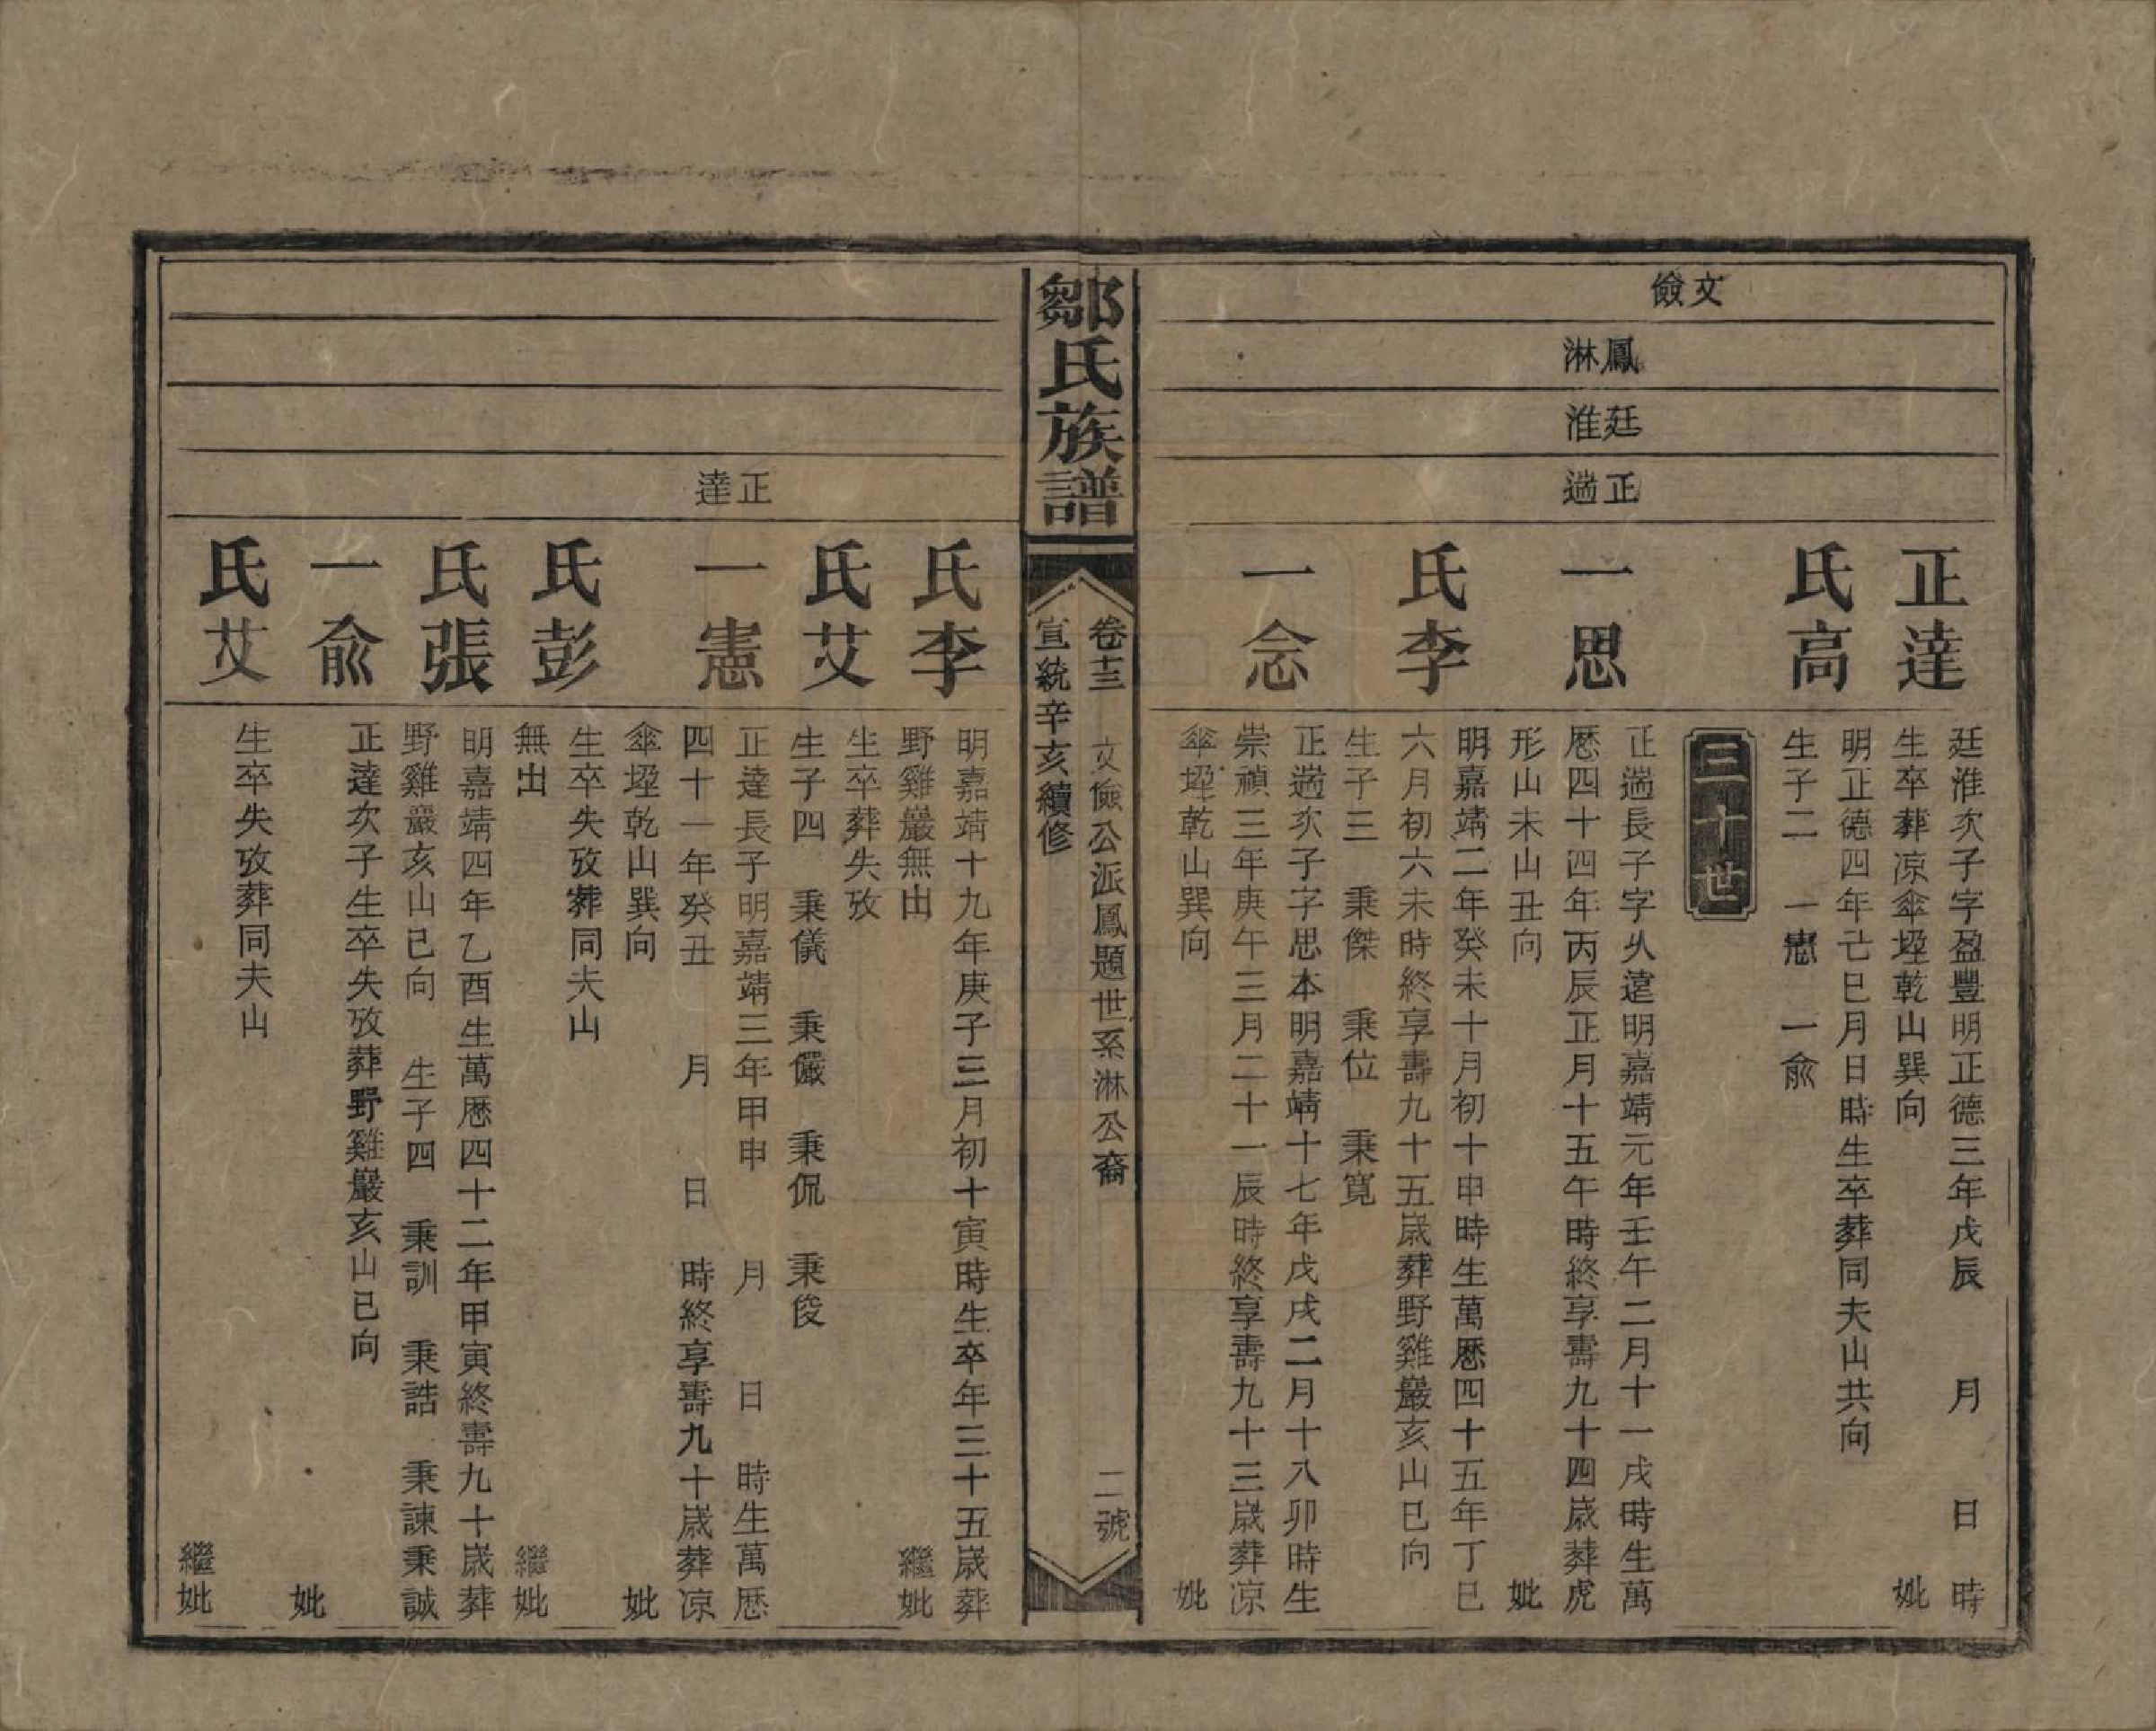 文儉
鳳淋
廷淮
正遄
正達
廷淮次子字盈豐明正德三年戊辰 月 日 時
生卒葬凉傘埡乾山巽向 妣
氏高
明正德四年己巳月日時生卒葬同夫山共向
生子二 一憲 一兪
三十世
一思
正遄長子字久遠明嘉靖元年壬午二月十一戌時生萬
厯四十四年丙辰正月十五午時終享壽九十四歲葬虎
形山未山丑向 妣
氏李
明嘉靖二年癸未十月初十申時生萬厯四十五年丁巳
六月初六未時終享壽九十五歲葬野雞巖亥山巳向
生子三 秉傑 秉位 秉寬
一念
正遄次子字思本明嘉靖十七年戊戌二月十八卯時生
崇禎三年庚午三月二十一辰時終享壽九十三歲葬凉
傘埡乾山巽向 妣
鄒氏族譜
卷十三 文儉公派鳳題世系淋公裔 二號
宣統辛亥續修
正達
氏李
明嘉靖十九年庚子三月初十寅時生卒年三十五歲葬
野雞巖無出 繼妣
氏艾
生卒葬失攷
生子四 秉儀 秉儼 秉侃 秉俊
一憲
正達長子明嘉靖三年甲申 月 日 時生萬厯
四十一年癸丑 月 日 時終享壽九十歲葬凉
傘埡乾山巽向 妣
氏彭
生卒失攷葬同夫山
無出 繼妣
氏張
明嘉靖四年乙酉生萬厯四十二年甲寅終壽九十歲葬
野雞巖亥山巳向 生子四 秉訓 秉誥 秉諫 秉誠
一兪
正達次子生卒失攷葬野雞巖亥山巳向
妣
氏艾
生卒失攷葬同夫山
繼妣